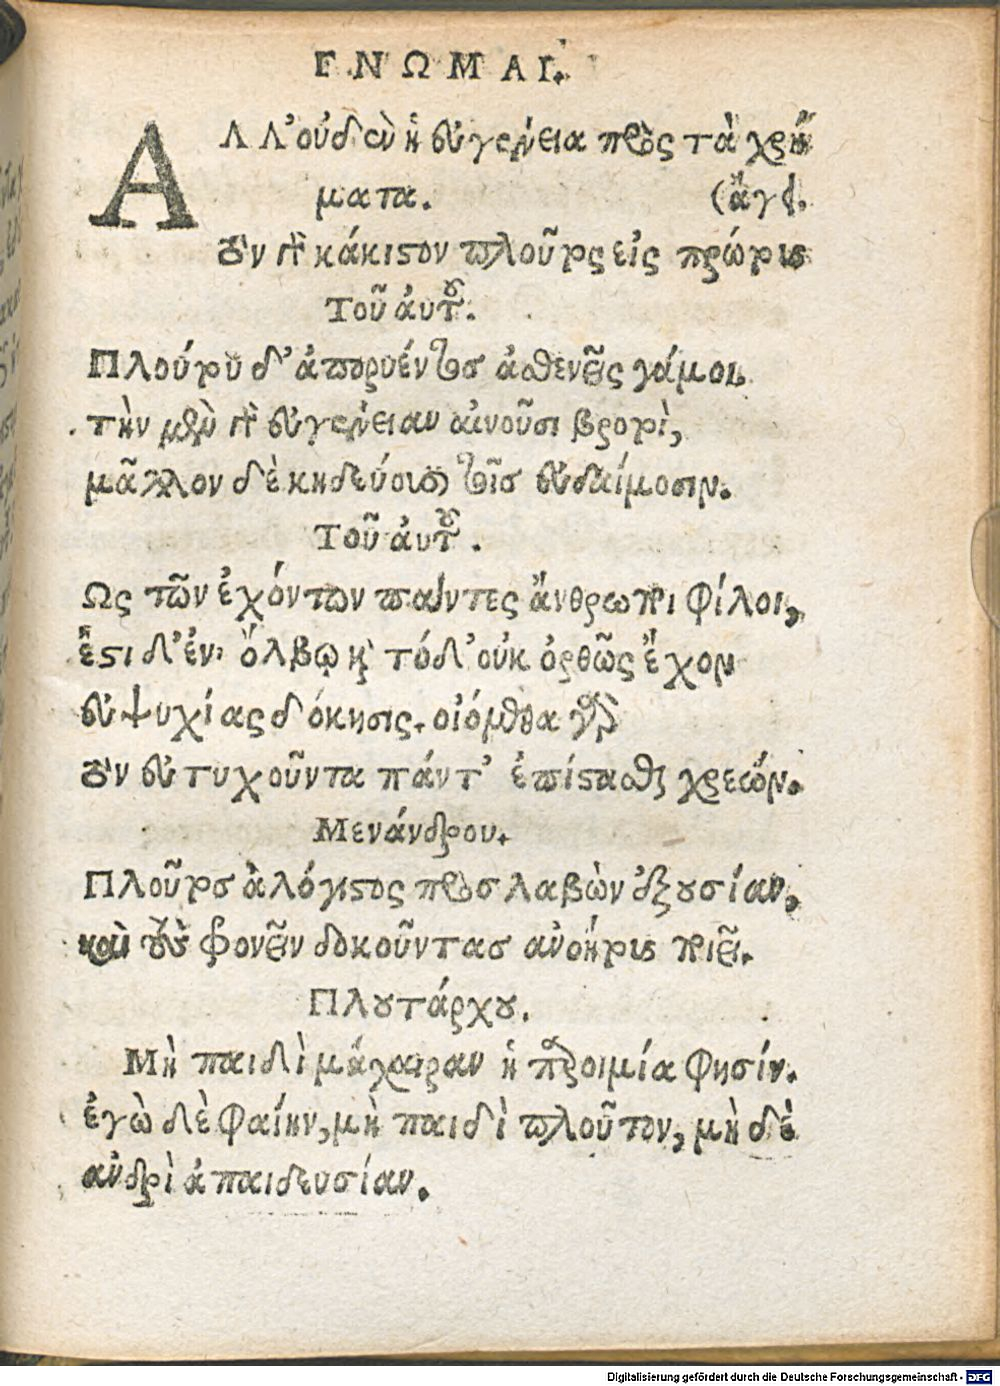 ΓΝΩΜΑΙ.
ΑΛΛ' οὐδὲν ἡ εὐγένεια πρὸς τὰ χρή
ματα. (ἄγει.
τὸν γὰρ κάκιστον πλοῦτος εἰς πρώτους
Τοῦ αὐτοῦ.
Πλούτου δ' ἀποῤῥυέντος ἀσθενεῖς γάμοι,
τὴν μὲν γὰρ εὐγένειαν αἰνοῦσι βροτοὶ,
μᾶλλον δὲ κηδεύουσι τοῖς εὐδαίμοσιν.
Τοῦ αὐτοῦ.
Ως τῶν ἐχόντων πάντες ἄνθρωποι φίλοι,
ἔστι δ' ἐν ὄλβῳ καὶ τόδ' οὐκ ὀρθῶς ἔχον
εὐψυχίας δόκησις. οἰόμεθα γὰρ
τὸν εὐτυχοῦντα πάντ' ἐπίστασθαι χρεών.
Μενάνδρου.
Πλοῦτος ἀλόγιστος προσλαβὼν ἐξουσίαν,
καὶ τοὺς φρονεῖν δοκοῦντας ἀνοήτους ποιεῖ.
Πλουτάρχου.
Μὴ παιδὶ μάχαιραν ἡ παροιμία φησίν.
ἐγὼ δὲ φαίην, μὴ παιδὶ πλοῦτον, μὴ δὲ
ἀνδρὶ ἀπαιδευσίαν.
Digitalisierung gefördert durch die Deutsche Forschungsgemeinschaft - DFG